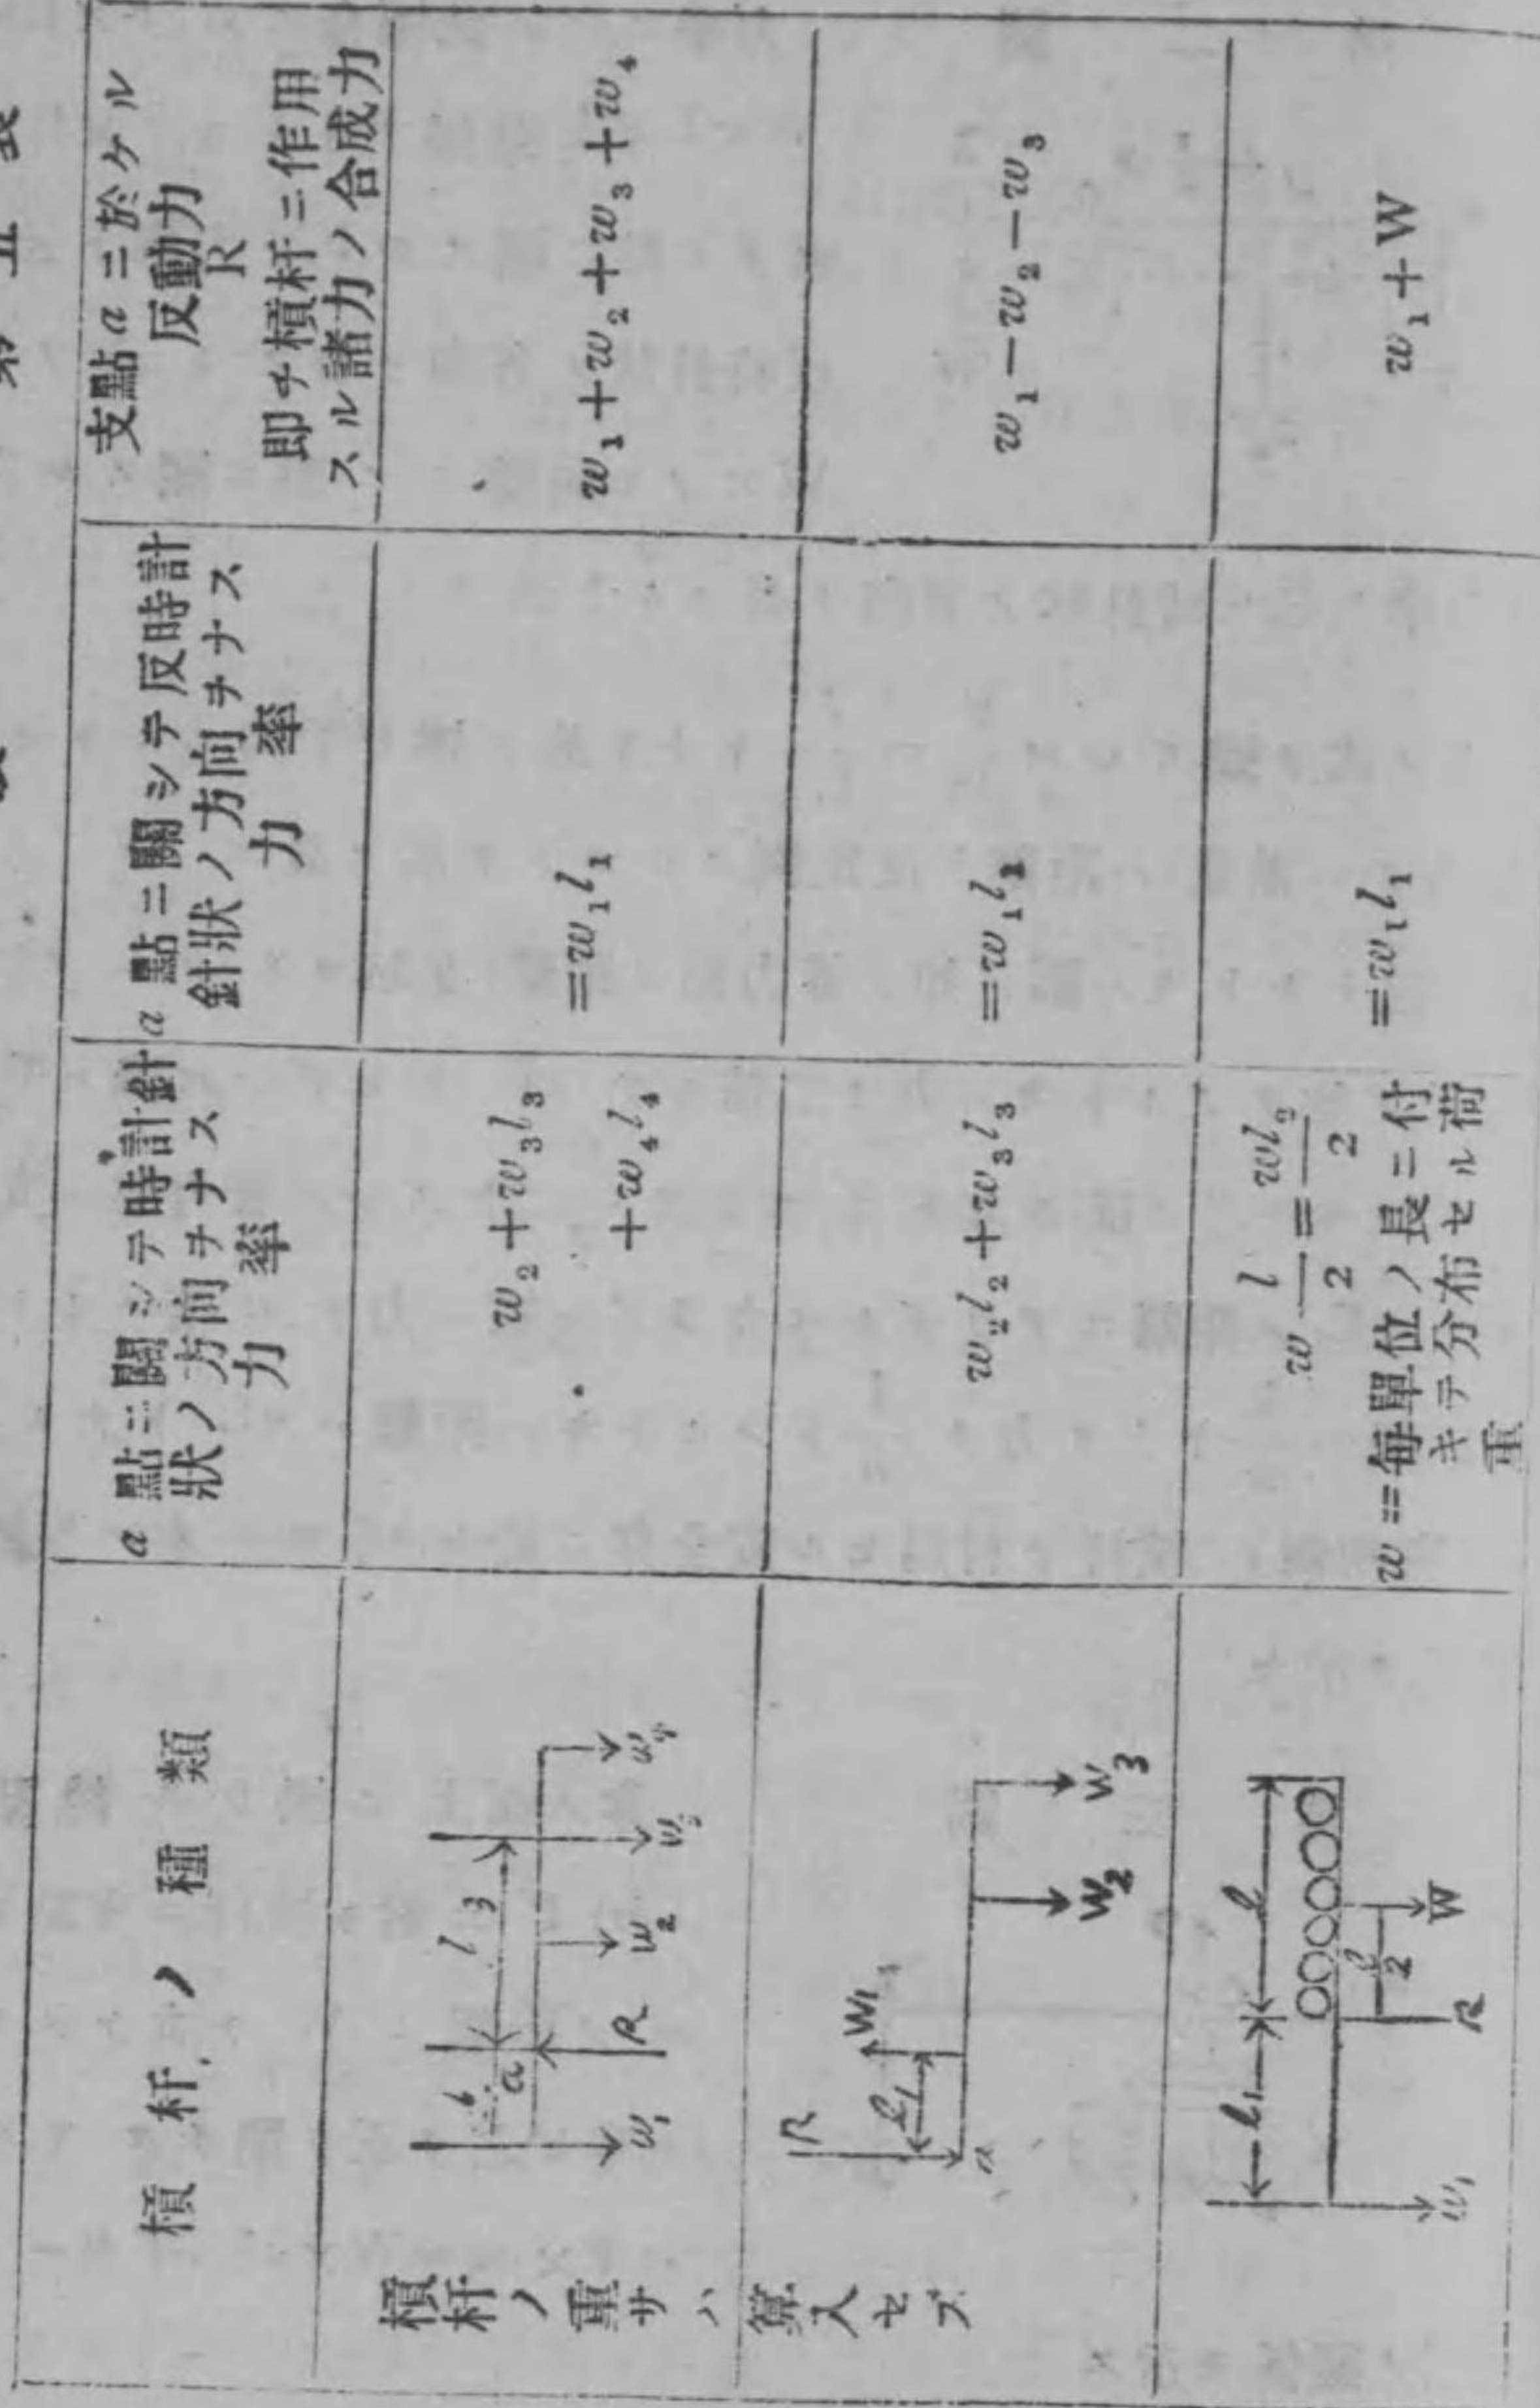 第五表
槓杆ノ種類
a 點ニ關シテ時計針
狀ノ方向チナス
力率
a 點ニ關シテ反時計
針狀ノ方向チナス
力率
支點 a ニ於ケル
反動力
R
即チ槓杆ニ作用
スル諸力ノ合成力
槓杆ノ重サハ算入セズ
l 3
a
R
w₁
w₂
w₂+w₃l₃
+w₄l₄
=w₁l₁
w₁+w₂+w₃+w₄
R
W₁
l₁
W₂
W₃
w₂l₂+w₃l₃
=w₁l₁
w₁−w₂−w₃
l₁
l
2
R
W
w₁
w l/2 = wl₂/2
w=每單位ノ長ニ付
キテ分布セル荷
重
=w₁l₁
w₁+W